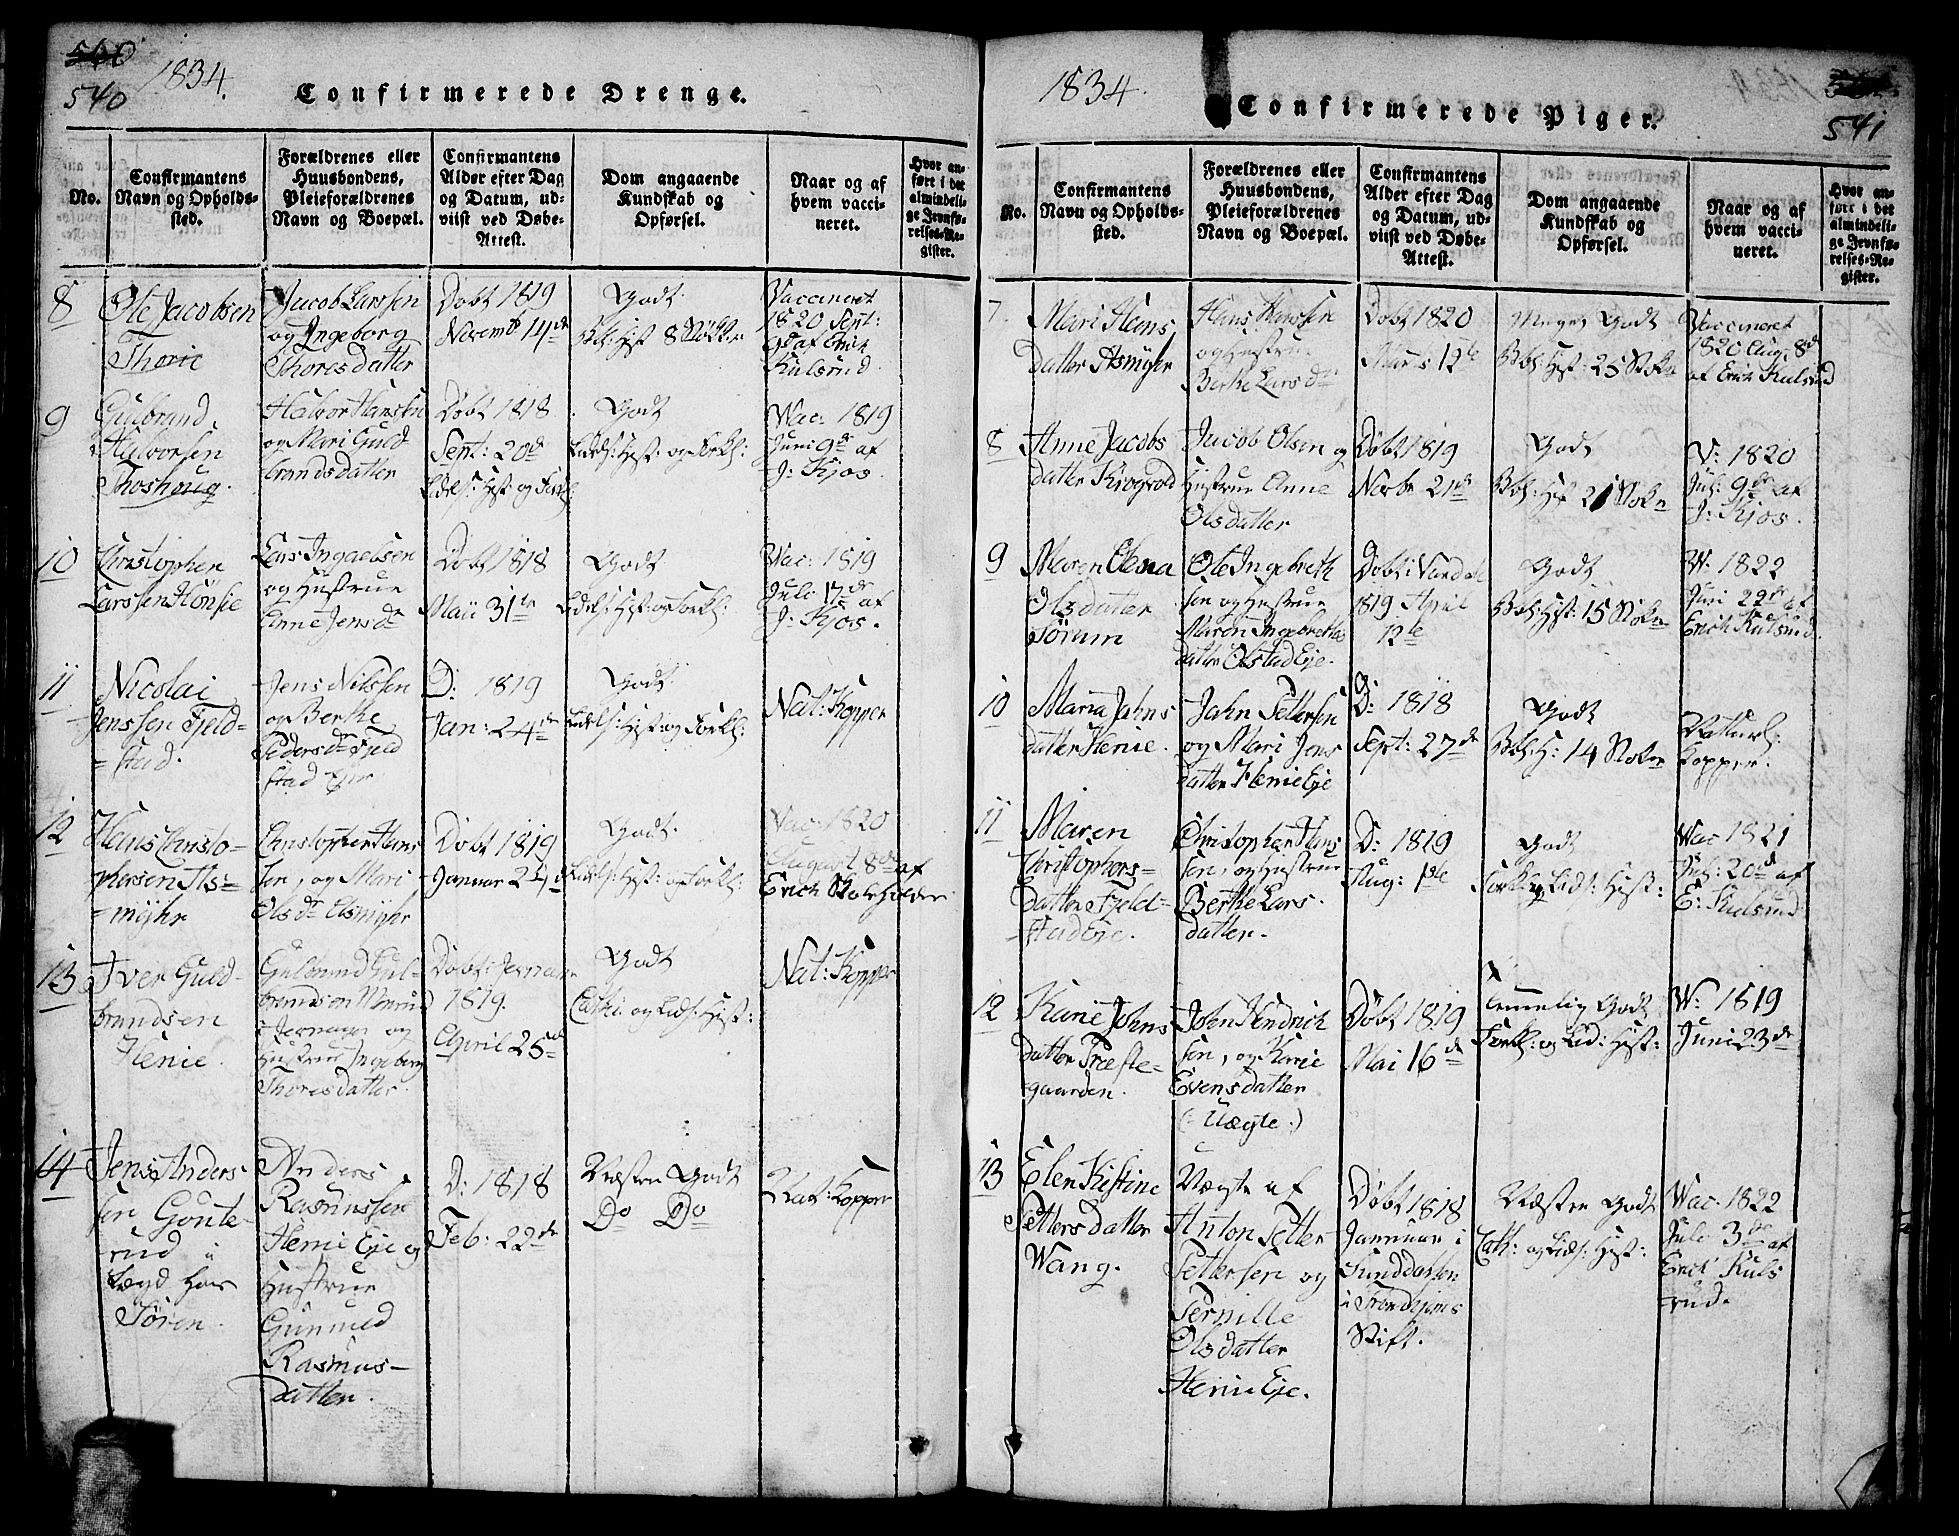 540
1834.
Confirmerede Drenge.
No.
Confirmantens
Navn og Opholds-
sted.
Forældrenes eller
Huusbondens,
Pleieforældrenes
Navn og Boepæl.
Confirmantens
Alder efter Dag
og Datum, ud-
viist ved Døbe-
Attest.
Dom angaaende
Kundskab og
Opførsel.
Naar og af
hvem vacci-
neret.
Hvor an-
ført i det
almindeli-
ge Jevnfø-
relses-Re-
gister.
8
Ole Jacobsen
Thorie
Jacob Larssen
og Ingeborg
Thoresdatter
Døbt 1819
Novemb 14de
Godt
Bib: Hist 8
Vaccineret
1820 Sept:
af Erich
Kulsrud.
9
Gulbrand
Halvorsen
Thoshoug.
Halvor Hansen
og Mari Guld
brandsdatter
Døbt 1818
Sept: 20de
Lidels: Hist og Forkl:
Godt
Lidels: Hist: og Forkl:
Vac: 1819
Juni 9de af
J: Kjos.
10
Christopher
Larssen Hönsie
Lars Ingaelsen
og Hustrue
Anne Jensdr
Døbt 1818
Maii 31te
Godt
Lidels: Hist: og Forkl:
Vac: 1819
Juli 17de af
J: Kjos.
11
Nicolai
Jenssen Fjeld-
-stad.
Jens Nilssen
og Berthe
Pedersdr Fjeld
stad Eier
D: 1819
Jan: 24de
Godt
Lidels: Hist: og Forkl:
Nat: Kopper
12
Hans Christo-
phersen As-
=myhr
Christopher Hans
sen, og Mari
Olsdr Asmyhr
Døbt 1819
Januar 24de
Godt.
Lidels: Hist: og Forkl:
Vac: 1820
August 8de af
Erich
13
Iver Guld-
brandsen
Henie.
Guldbrand Gul-
brandsen
i Jernager og
Hustrue Ingeborg
Thoresdatter
Døbt i Jevnaker
1819.
April 25de
Godt
Cathi: og Lids: Hist:
Nat: Kopper
14
Jens Anders
sen Gonte-
rud i
Lægd hos
Sören.
Anders
Rasmussen
Henie Eie og
Hustrue
Gunnild
Rasmus-
datter.
D: 1818
Feb: 22de
Næsten Godt
Do Do
Nat: Kopper
1834.
Confirmerede Piger.
541
No.
Confirmantens
Navn og Opholds-
sted.
Forældrenes eller
Huusbondens,
Pleieforældrenes
Navn og Boepæl.
Confirmantens
Alder efter Dag
og Datum, ud-
viist ved Døbe-
Attest.
Dom angaaende
Kundskab og
Opførsel.
Naar og af
hvem vacci-
neret.
Hvor an-
ført i det
almindeli-
ge Jevnfø-
relses-Re-
gister.
7.
Mari Hans
datter Asmyhr
Hans Hanssen
og Hustrue
Berthe Larsdr
Døbt 1820
Marts 12te
Meget Godt
Bib: Hist: 25 Stöker
Vaccineret
1820 Aug: 8de
af Erich Kulsrud
8
Anne Jacobs
datter Krogrød
Jacob Olsen og
Hustrue Anne
Olsdatter
Døbt 1819
Novbr 21de
Godt
Bib: Hist 21 Stöker
V: 1820
Juli 9de af
J: Kjos.
9
Maren Olena
Olsdatter
Sörum
Ole Ingebreth
sen og Hustrue
Maren Ingebreths
datter Olstad Eje.
Døbt i Vardal
1819 April
12te
Godt
Bib: Hist: 15 Stöker
W: 1822
Juni 29de af
Erich Kulsrud.
10
Maria Jahns
datter Henie.
Jahn Pettersen
og Mari Jens
datter Henie Eje
D: 1818
Sept: 27de
Godt
Bib: H: 14 Stöker
Naturl:
kopper.
11
Maren
Christophers-
datter Fjeld-
stad Eje.
Christopher Hans
sen, og Hustrue
Berthe Lars
datter.
D: 1819
Aug: 1ste
Godt
Forkl: og Lids: Hist:
Vac 1821
Juli 20de af
E: Kulsrud
12
Karie Johns
datter Præste-
gaarden.
John Hendrich
sen, og Karie
Evensdatter
(: Uægte :)
Døbt 1819
Mai 16de
Temmelig Godt
Forkl: og Lid: Hist:
W: 1819
Juni 23de
13
Elen Kistine
Pettersdatter
Wang.
Uægte af
Anton Petter
Pettersen og
Pernille
Olsdatter
Henie Eje.
Døbt 1818
Januar i
Sunddalen
i Trondhjems
Stift.
Næsten Godt
Cath: og Lids: Hist:
Wac: 1822
Juli 3de af
Erich Kuls
rud.